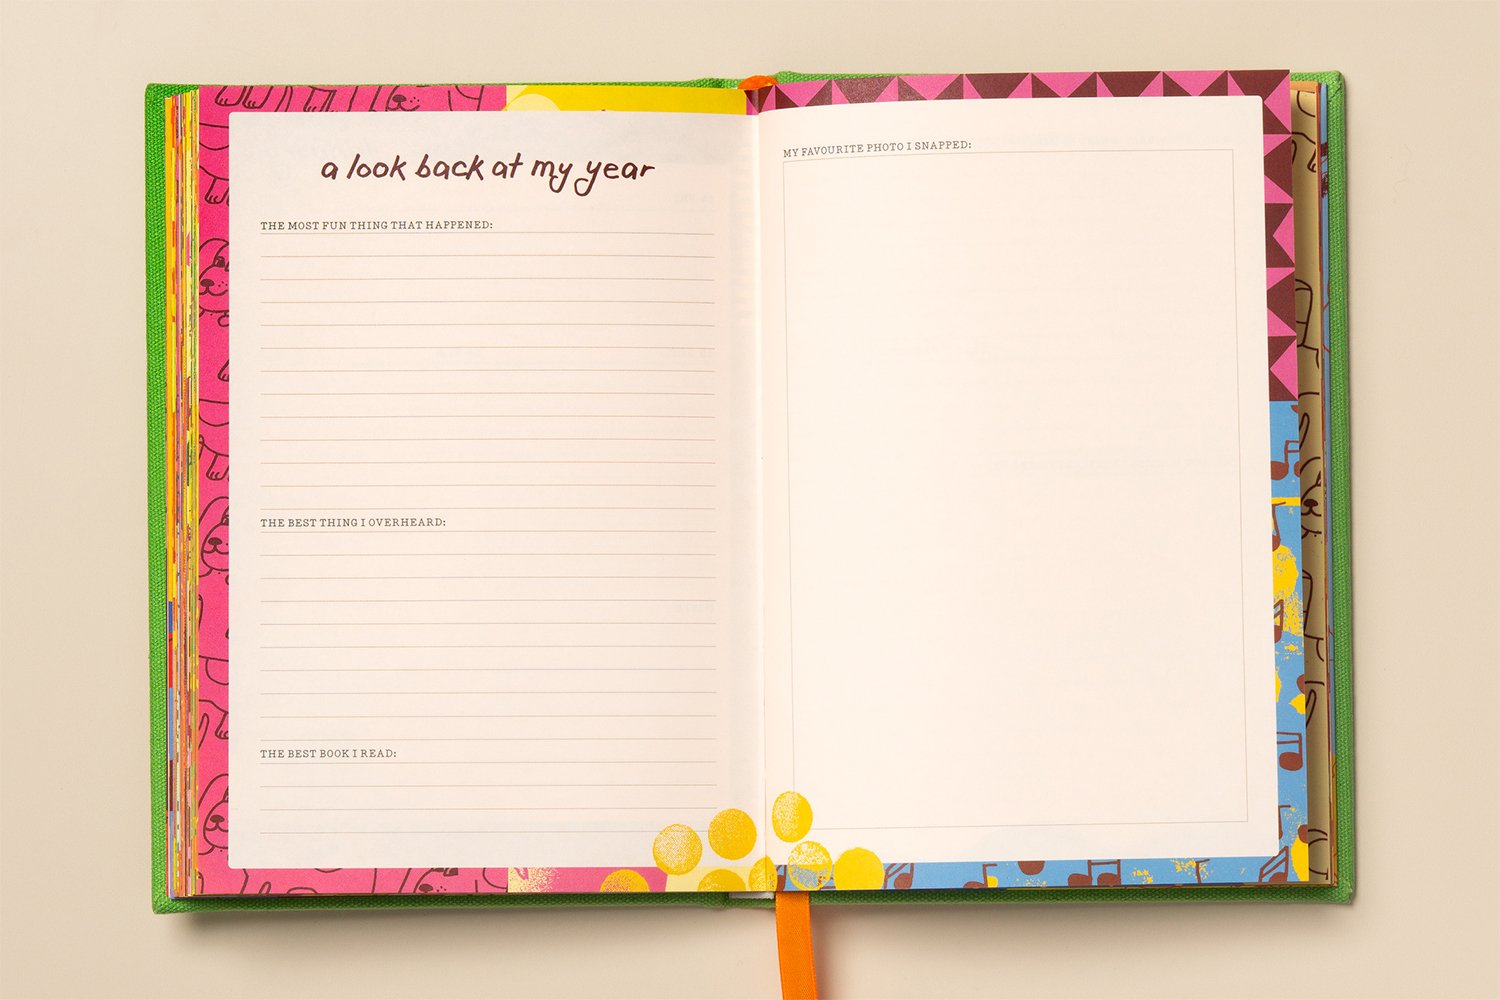 a look back at my year
THE MOST FUN THING THAT HAPPENED:
THE BEST THING I OVERHEARD:
THE BEST BOOK I READ:
MY FAVOURITE PHOTO I SNAPPED: